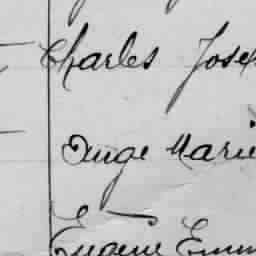 Charles Josep
Ange Marie
Eugène Emm